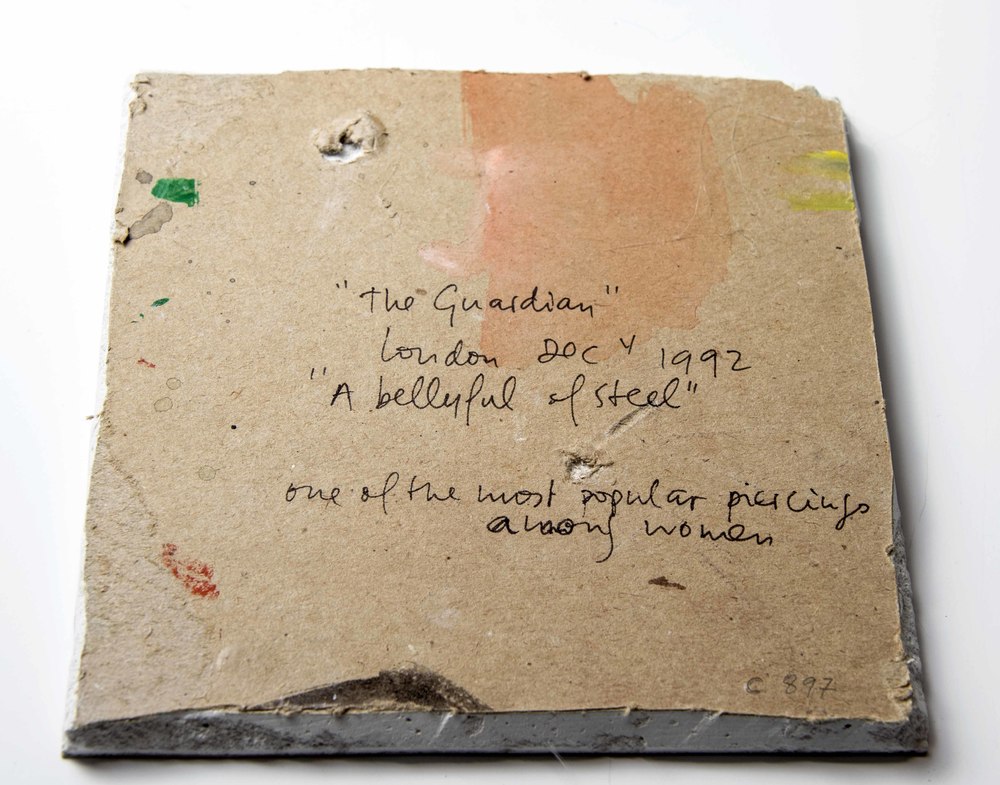 "The Guardian"
London DEC 4 1992
"A bellyful of steel"
one of the most popular piercings
among women
C 897